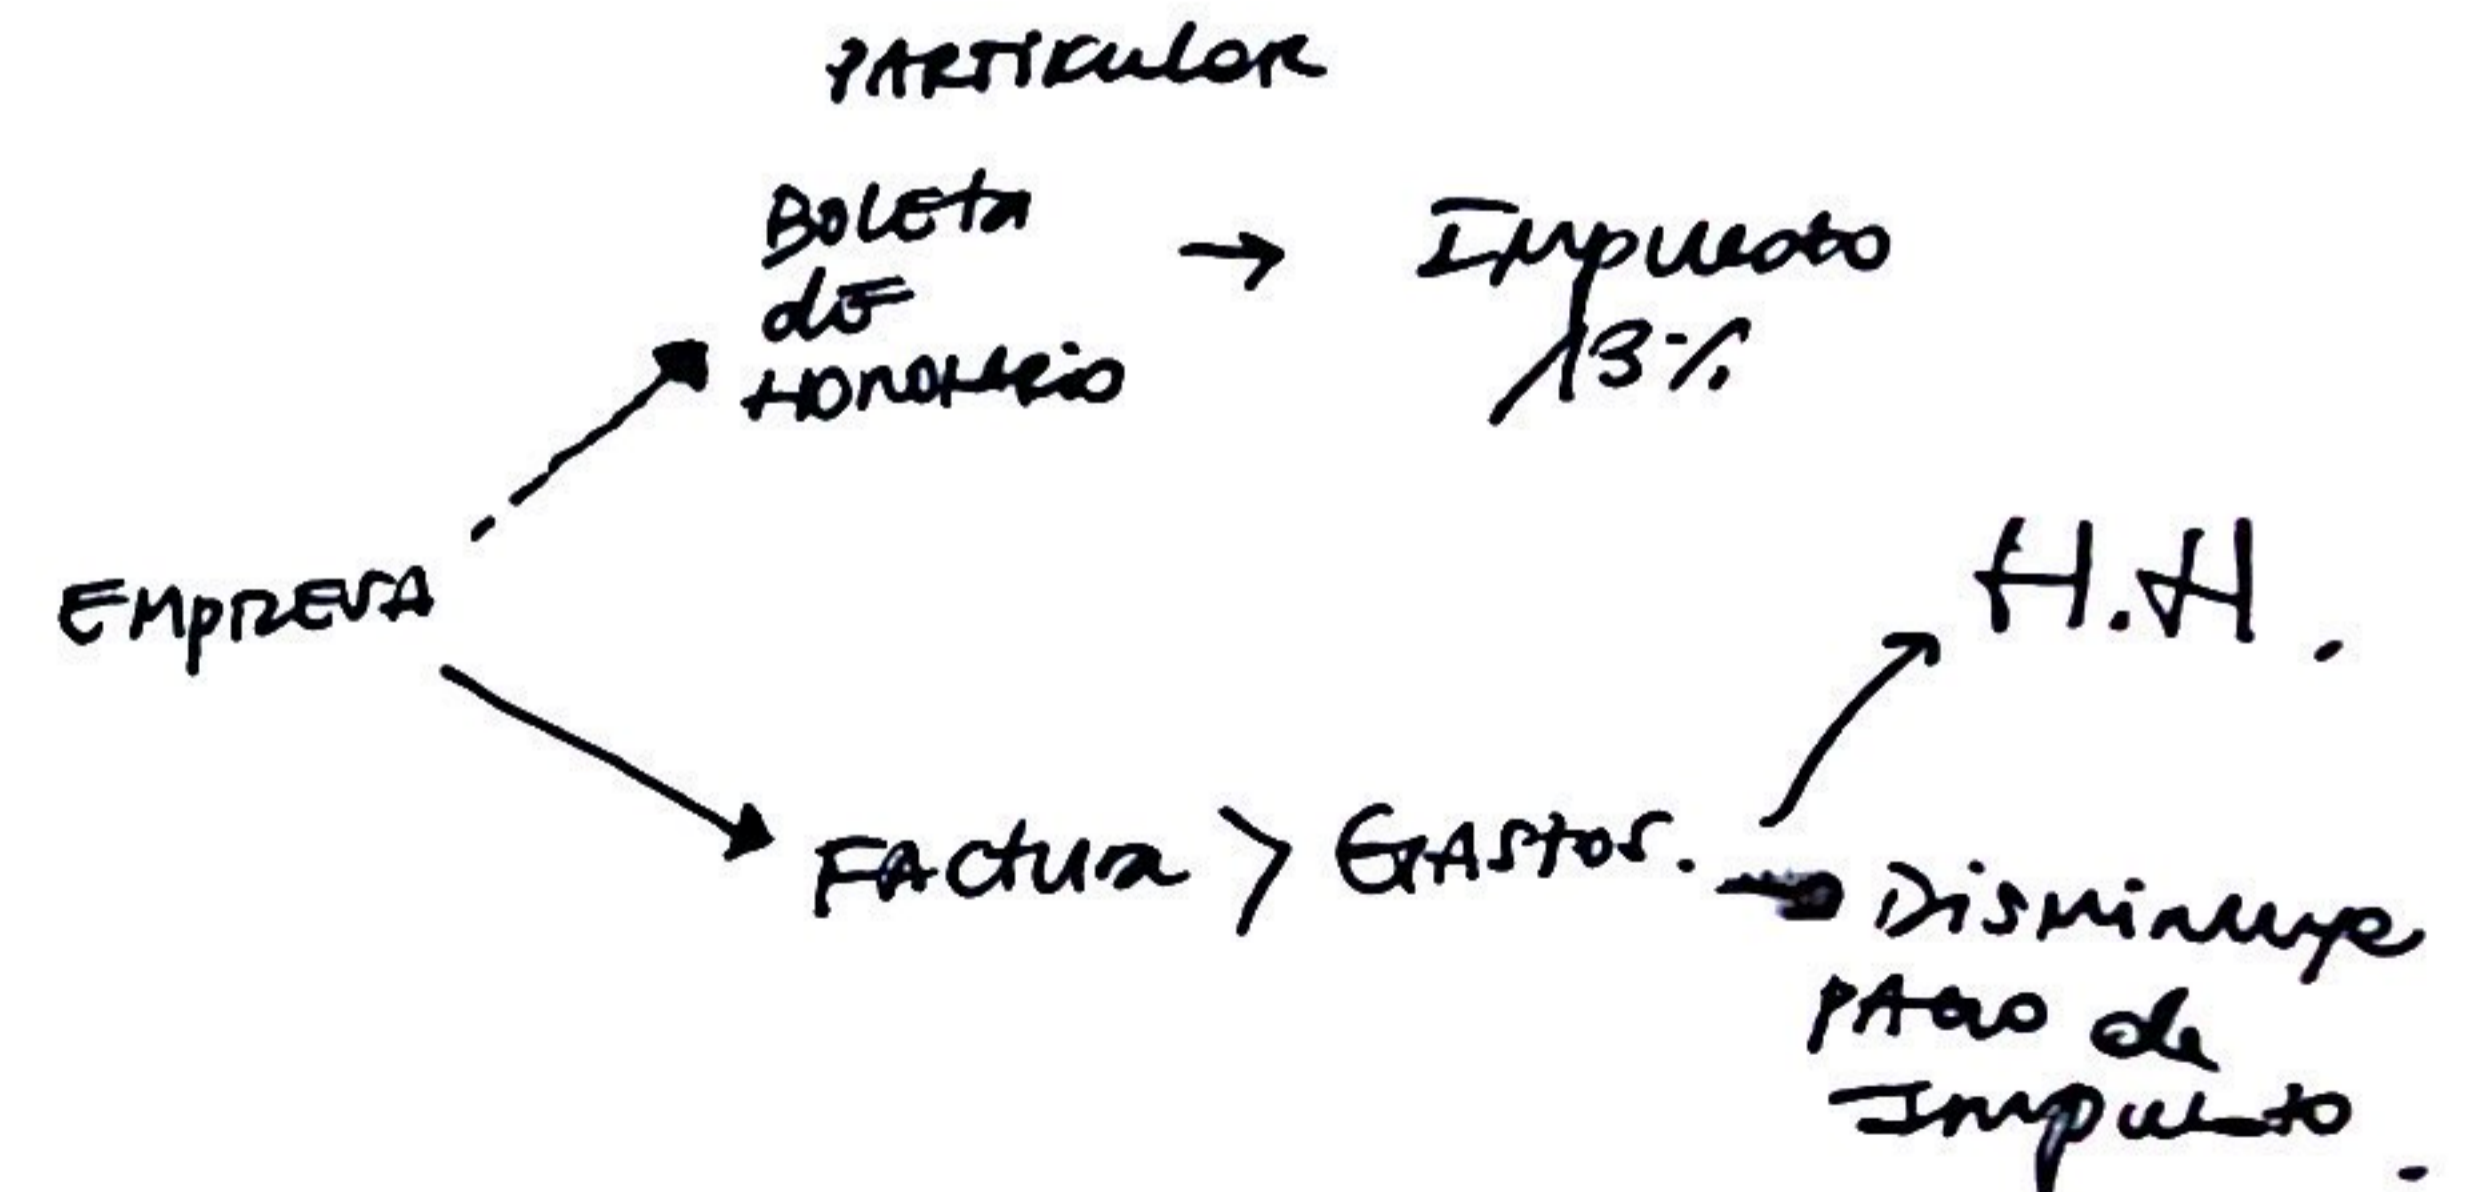 PARTICULAR
BOLETA
de
HONORARIO
→ Impuesto
13%
EMPRESA
H.H.
Factura > GASTOS.
Disminuye
PAGO de
Impuesto